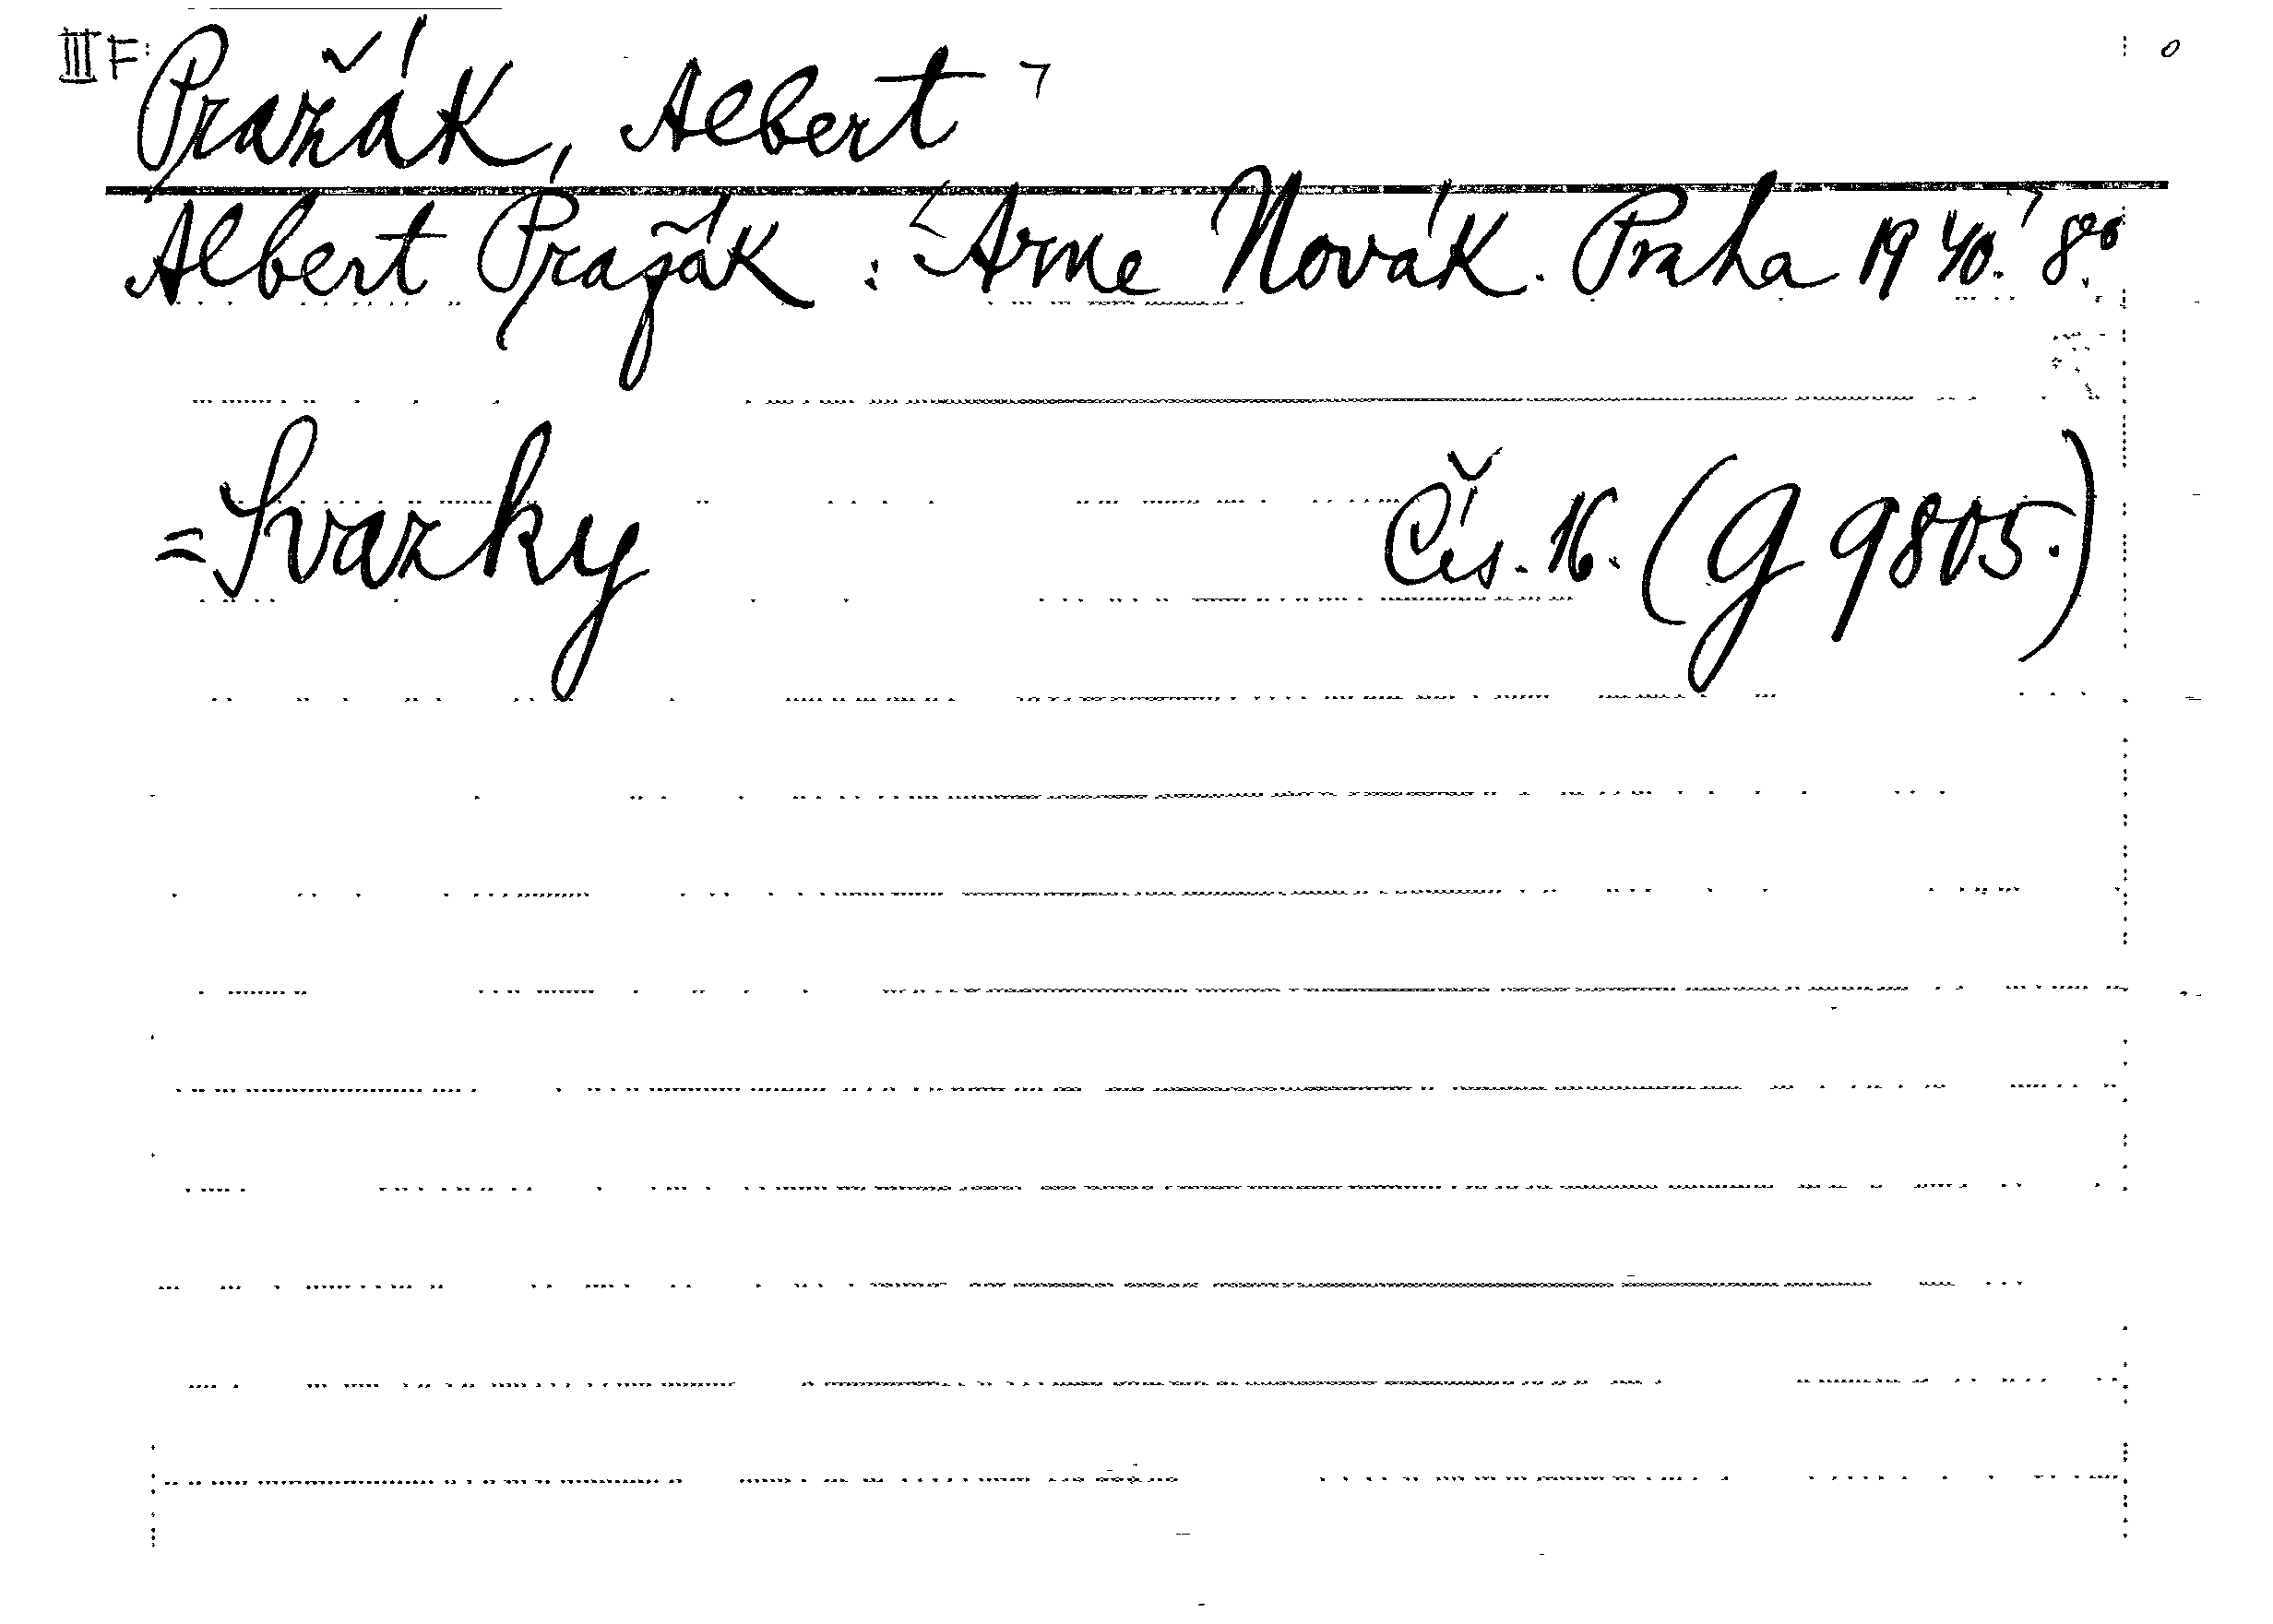 III F: Pražák, Albert
Albert Pražák: Arne Novák. Praha 1940. 8°.
= Svazky Čís. 16. (G 9805.)